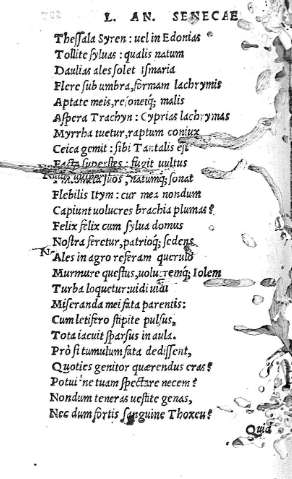 L. AN. SENECAE
Thessala Syren: uel in Edonias
Tollite syluas: qualis natum
Daulias ales solet Ismaria
Flere sub umbra, formam lachrymis
Aptate meis, resonetq; malis
Aspera Trachyn: Cyprias lachrymas
Myrrha tuetur, raptum coniux
Ceica gemit: sibi Tantalis est
Facta superstes: fugit uultus
suos, natumq; sonat
Flebilis Itym: cur mea nondum
Capiunt uolucres brachia plumas?
Felix felix cum sylua domus
Nostra feretur, patrioq; sedens
Ales in agro referam querulo
Murmure questus, uolucremq; Iolem
Turba loquetur: uidi uidi
Miseranda mei fata parentis:
Cum letifero stipite pulsus,
Tota iacuit sparsus in aula.
Prò si tumulum fata dedissent,
Quoties genitor quærendus eras?
Potui ne tuam spectare necem?
Nondum teneras uestite genas,
Nec dum fortis sanguine Thoxeu?
Quid